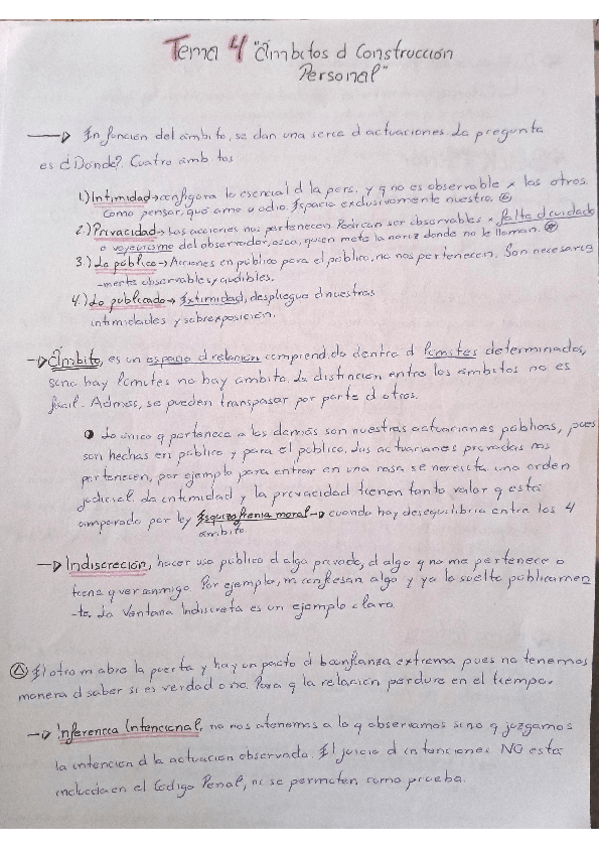 Tema 4 "Ámbitos d Construcción
Personal"
En función del ámbito, se dan una serie d actuaciones. La pregunta
es ¿Dónde? Cuatro ámbitos
1.) Intimidad → configura lo esencial d la pers. y q no es observable x los otros.
Como pensar, qué amo u odio. Espacio exclusivamente nuestro.
2.) Privacidad → Las acciones nos pertenecen. Podrían ser observables x falta d cuidado
o voyeurismo del observador, osea, quien mete la nariz donde no le llaman.
3.) Lo público → Acciones en público para el público, no nos pertenecen. Son necesaria
-mente observables y audibles.
4.) Lo publicado → Extimidad, despliegue d nuestras
intimidades y sobrexposición.
→ Ámbito, es un espacio d relación comprendido dentro d límites determinados,
si no hay límites no hay ámbito. La distinción entre los ámbitos no es
fácil. Admás, se pueden transpasar por parte d otros.
Lo único q pertenece a los demás son nuestras actuaciones públicas, pues
son hechas en público y para el público. Las actuaciones privadas nos
pertenecen, por ejemplo para entrar en una casa se necesita una orden
judicial. La intimidad y la privacidad tienen tanto valor q está
amparado por ley. Esquizofrenia moral → cuando hay desequilibrio entre los 4
ámbito
→ Indiscreción, hacer uso público d algo privado, d algo q no me pertenece o
tiene q ver conmigo. Por ejemplo, m confiesan algo y yo lo suelto públicamen
-te. La Ventana Indiscreta es un ejemplo claro.
El otro m abre la puerta y hay un pacto d confianza extrema pues no tenemos
manera d saber si es verdad o no. Para q la relación perdure en el tiempo.
→ Inferencia Intencional, no nos atenemos a lo q observamos sino q juzgamos
la intención d la actuación observada. El juicio d intenciones NO está
incluida en el Código Penal, ni se permiten como prueba.